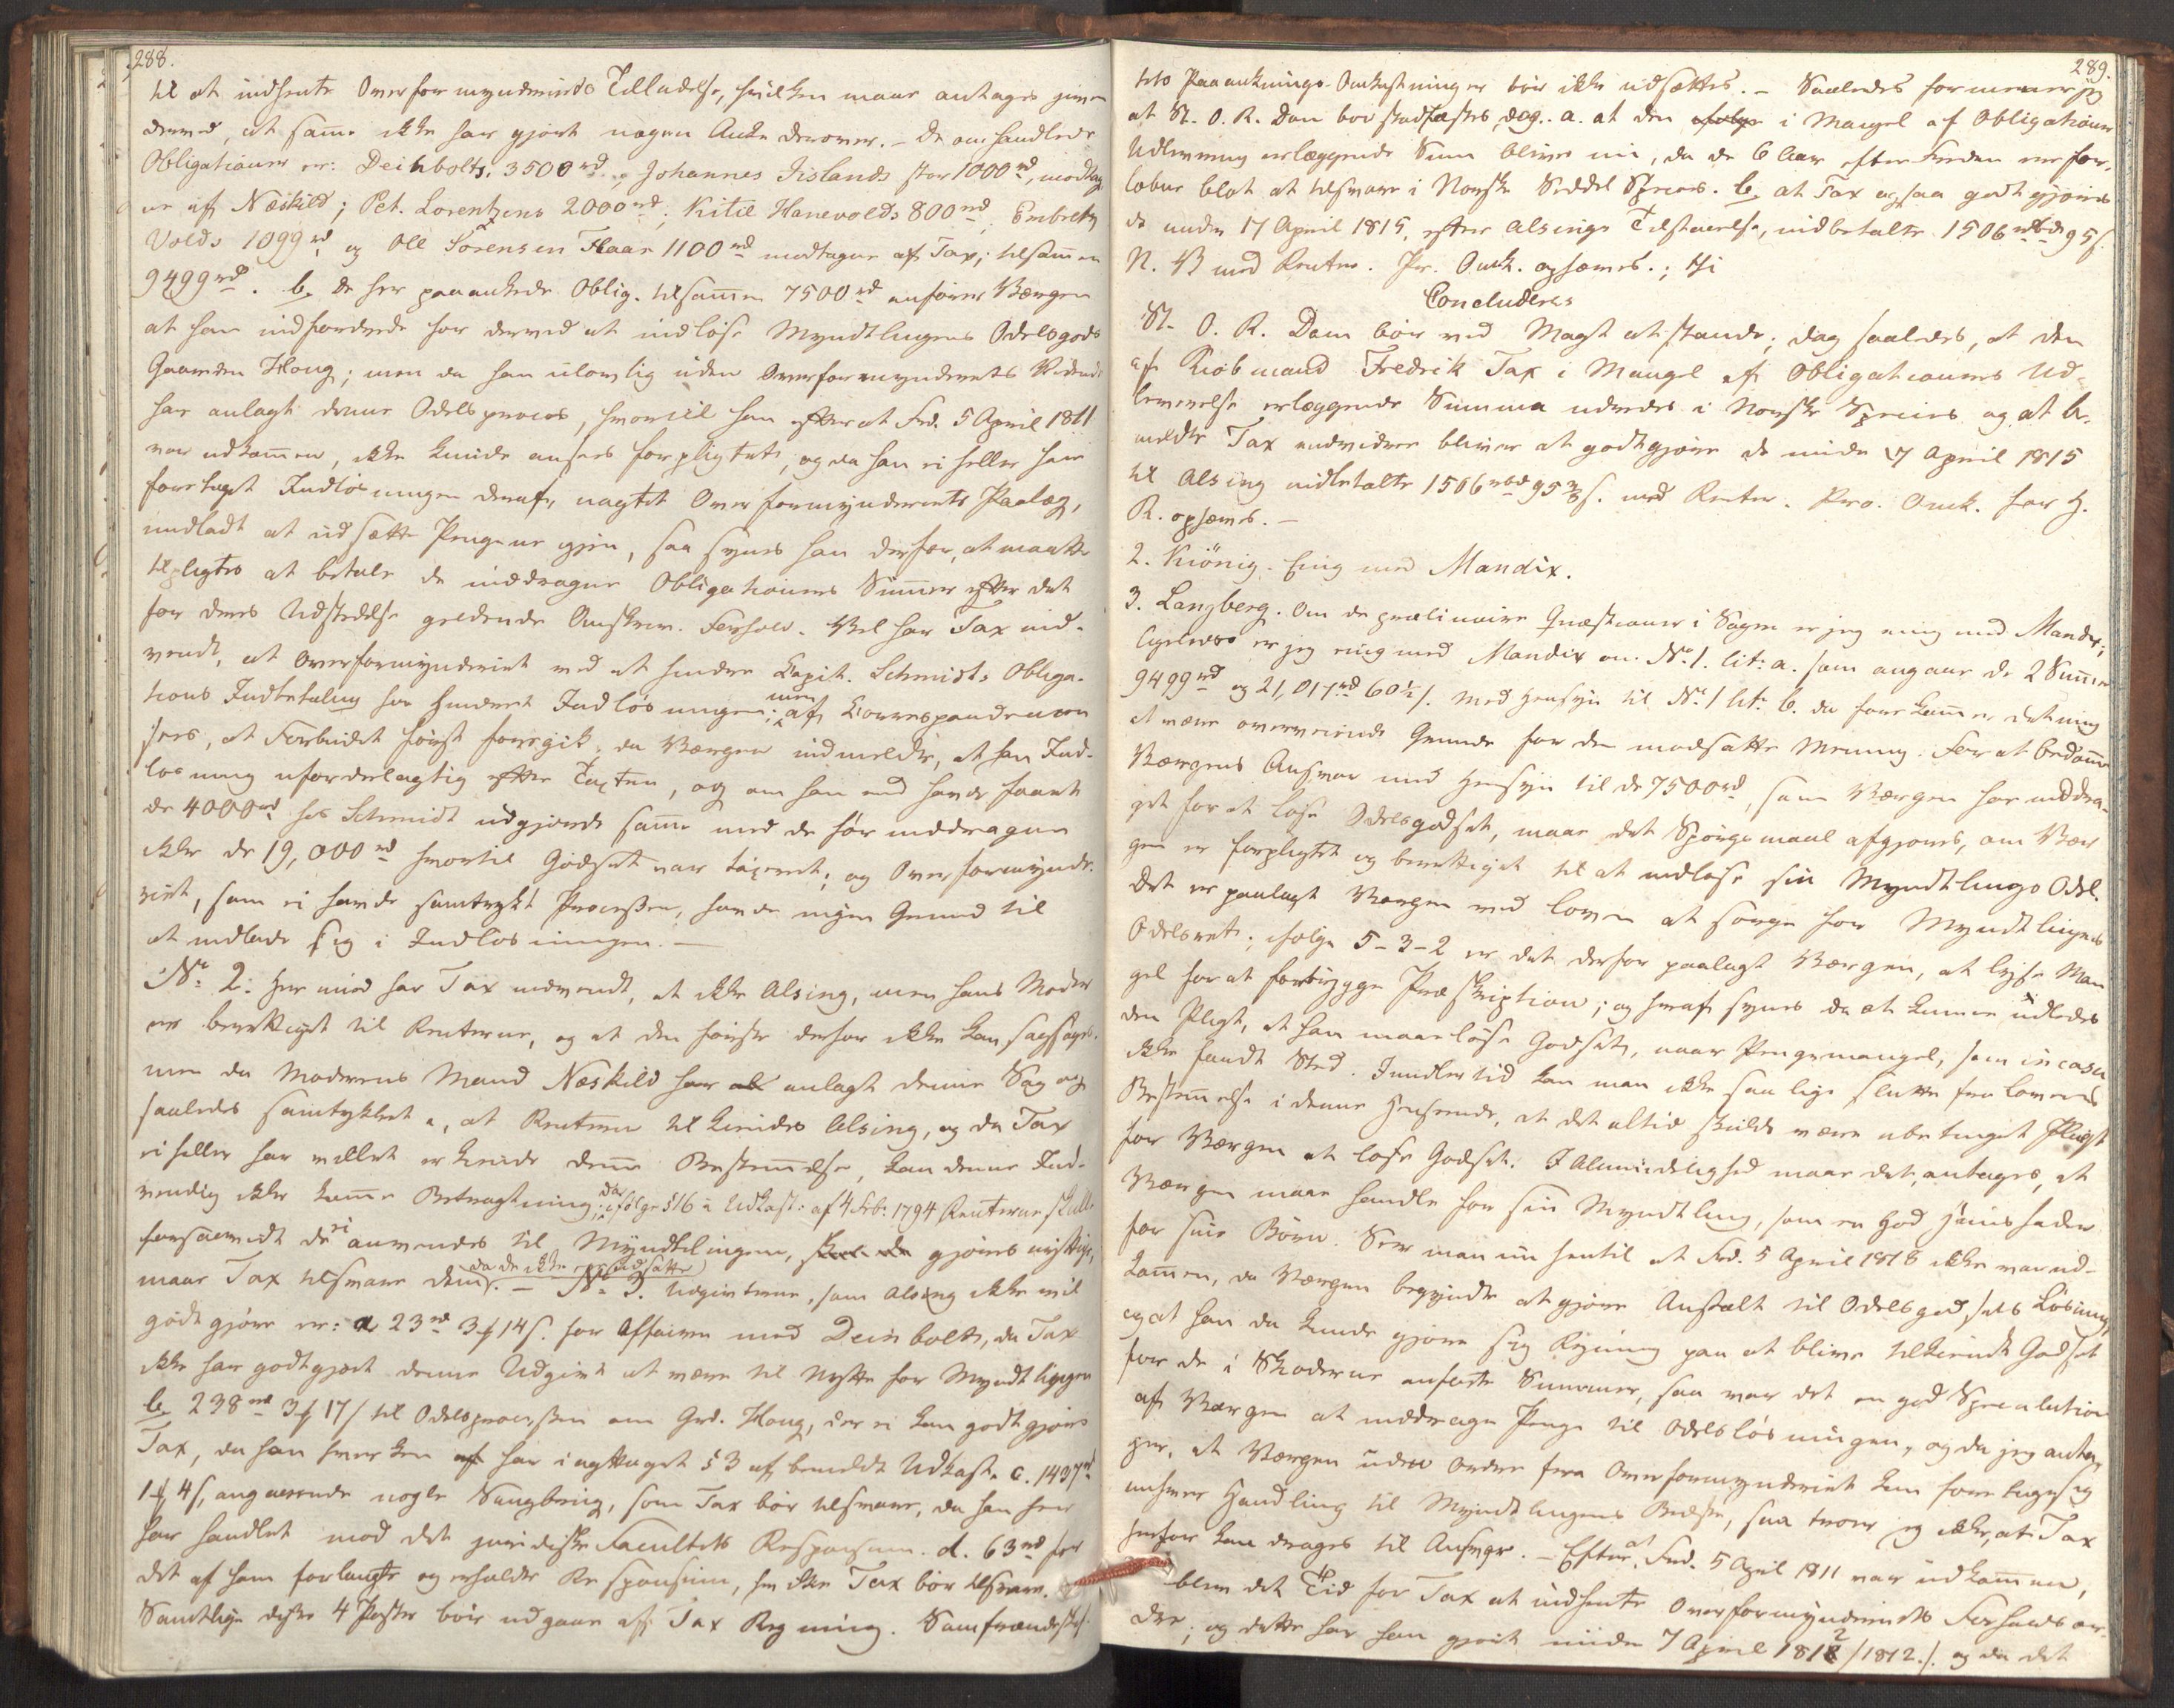 288.
til at indhente Overformynderiets Tilladelse, hvilken maae antages given
derved, at samme ikke har gjort nogen Anke derover. – De omhandlede
Obligationer er: Deinbolts: 3500 rd, Johannes Islands stor 1000 rd, modtag
ne af Næskild; Pet. Lorentzens 2000 rd; Kitil Hanevolds 800 rd. Embrets
Volds 1099 rd og Ole Sörensen Flaae 1100 rd modtagne af Tax; tilsammen
9499 rd. b. De her paaankede Oblig. tilsammen 7500 rd anförer Værgen
at han indfordrede for derved at indlöse Myndtlingens Odelsgods
Gaarden Houg; men da han ulovlig uden Overformynderiets Vidende
har anlagt denne Odelsproces, hvortil han efterat Frd. 5 April 1811
var udkommen, ikke kunde ansees forpligtet, og da han ei heller har
foretaget Indlösningen deraf, uagtet Overformynderiets Paalæg,
undladt at udsætte Pengene igjen, saa synes han derfor, at maatte
tilpligtes at betale de inddragne Obligationers Summer efter det
for deres Udstedelse gieldende Omskrivn. Forhold. Vel har Tax ind-
vendt, at Overformynderiet ved at hindre Capit. Schmidts Obliga-
tions Indbetaling har hindret Indlösningen; men af Correspondencen
sees, at Forbudet först foregik, da Værgen indmeldte, at han Ind-
lösning ufordeelagtig efter Taxten, og om han end havde faaet
de 4000 rd hos Schmidt udgjorde samme med de för inddragne
ikke de 19,000 rd hvortil Godset var taxeret; og Overformynde-
riet, som ei havde samtykt Processen, havde ingen Grund til
at indlade sig i Indlösningen. –
No 2. Her imod har Tax indvendt, at ikke Alsing, men hans Moder
er berettiget til Renterne, og at den förste derfor ikke kan sagsøge.
men da Moderens Mand Næskild har anlagt denne Sag og
saaledes samtykket i, at Renterne tilkiendes Alsing, og da Tax
ei heller har villet erkiende denne Bestemmelse, kan denne Ind-
vending ikke komme Betragtning; da ifölge § 16 i Udkast: af 4 Feb: 1794 Renterne skulle
forsaavidt de ei anvendes til Myndtlingen, gjöres frugtbringende,
maae Tax tilsvare dem (da de ikke ere udsatte). – No 3. Udgivterne, som Alsing ikke vil
godtgjöre er: a 23 rd 3 ₰ 14 s. for Affairen med Deinbolt, da Tax
ikke har godtgjort denne Udgivt at være til Nytte for Myndtlingen
b. 238 rd 3 ₰ 17 s til Odelsprocessen om Grd. Houg, der ei kan godtgjöres
Tax, da han hverken har iagttaget § 3 af bemeldt Udkast. c. 1437 rd
1 ₰ 4 s, angaaende nogle Saugbrug, som Tax bör tilsvare, da han her
har handlet mod det juridiske Facultets Responsum. d. 63 rd for
det af ham forlangte og erholdte Responsum, som ikke Tax bör tilsvare.
Samtlige disse 4 Poster bör udgaae af Tax Regning. Samfrændeskif-
289.
tets Paaanknings-Omkostninger bör ikke udsættes. – Saaledes formener jeg
at St. O. R. Dom bör stadfæstes, dog. a. at den i Mangel af Obligationers
Udlevering erlæggende Sum bliver nu, da de 6 Aar efter Freden ere for-
löbne blot at tilsvare i Norske Seddel Species. b, at Tax ogsaa godtgjöres
de under 17 April 1815, efter Alsings Tilstaaelse, indbetalte 1506 rbd 95 s.
N. V med Renter. Pr. Omk. ophæves.; thi
Concluderes
St. O. R. Dom bör ved Magt at stande; dog saaledes, at den
af Kiöbmand Fredrik Tax i Mangel af Obligationers Ud-
leverelse erlæggende Summa udredes i Norske Species og at be-
meldte Tax endvidere bliver at godtgjöre de under 17 April 1815
til Alsing indbetalte 1506 rbd 95 s. med Renter. Pro. Omk. for H.
R. ophæves. –
2. Kiönig. Enig med Mandix.
3. Langberg. Om de prælinaire Quæstioner i Sagen er jeg enig med Mandix;
ligeledes er jeg enig med Mandix om No 1. lit: a. som angaar de 2 Summer
9499 rd og 21,017 rd 60½ s. Med Hensyn til No 1 lit. b. da forekommer det mig
at være overveiende Grunde for den modsatte Mening. For at bedömme
Værgens Ansvar med Hensyn til de 7500 rd, som Værgen har inddra-
get for at löse Odelsgodset, maae det Spörgsmaal afgjöres, om Vær
gen er forpligtet og berettiget til at indlöse sin Myndtlings Odel.
Det er paalagt Værgen ved Loven at sörge for Myndtlingens
Odelsret; ifölge 5-3-2 er det derfor paalagt Værgen, at lyse Man
gel for at forebygge Præskription; og heraf synes da at kunne udledes
den Pligt, at han maae löse Godset, naar Pengemangel, som in casu
ikke fandt Sted. Imidlertid kan man ikke saa lige slutte fra Lovens
Bestemmelse i denne Henseende, at det altid skulde være ubetinget Pligt
for Værgen at löse Godset. I Almindelighed maae det, antages, at
Værgen maae handle for sin Myndtling, som en god Huusfader
for sine Börn. Seer man nu hentil at Frd. 5 April 1818 ikke var ud-
kommen, da Værgen begyndte at gjöre Anstalt til Odelsgodsets Lösning,
og at han da kunde gjöre sig Regning paa at blive tilkiendt Godset
for de i Skjöderne anförte Summer, saa var det en god Speculation
af Værgen at inddrage Penge til Odelslösningen, og da jeg anta-
ger, at Værgen uden Ordre fra Overformynderiet kan foretage sig
enhver Handling til Myndtlingens Bedste, saa troer jeg ikke, at Tax
herfor kan drages til Ansvar. – Efter at Frd. 5 April 1811 var udkommen,
blev det Tid for Tax at indhente Overformynderiets Forholdsor-
dre; og dette har han gjort under 7 April 1812 /1812./. og da det